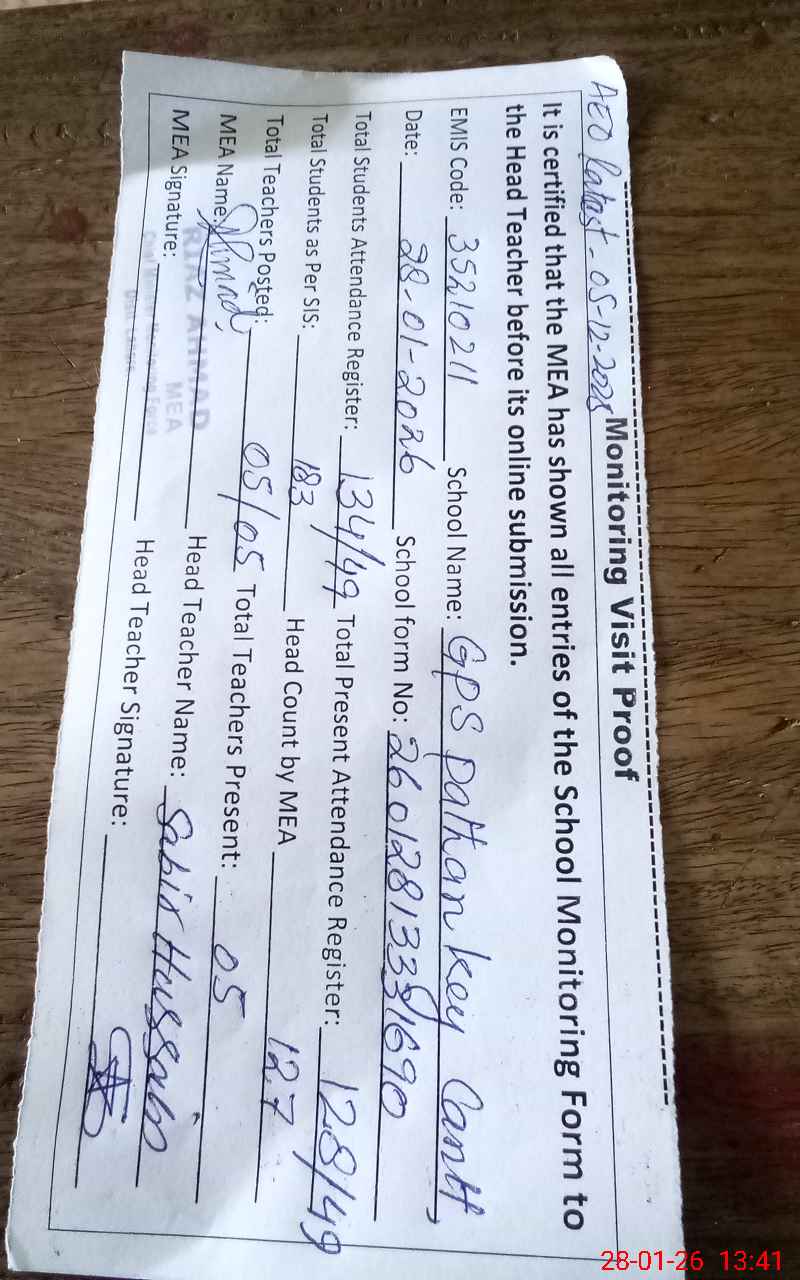 Monitoring Visit Proof
AEO Latest - 05-12-2025
It is certified that the MEA has shown all entries of the School Monitoring Form to
the Head Teacher before its online submission.
EMIS Code: 35210211 School Name: GPS Pathan Key Cantt,
Date: 28-01-2026 School form No:
Total Students Attendance Register: 134/49 Total Present Attendance Register: 128/49
Total Students as Per SIS: 183 Head Count by MEA 127
Total Teachers Posted: 05/05 Total Teachers Present: 05
MEA Name: Head Teacher Name: Sabir Hussain
MEA Signature: Head Teacher Signature:
RIAZ AHMAD
MEA
28-01-26 13:41